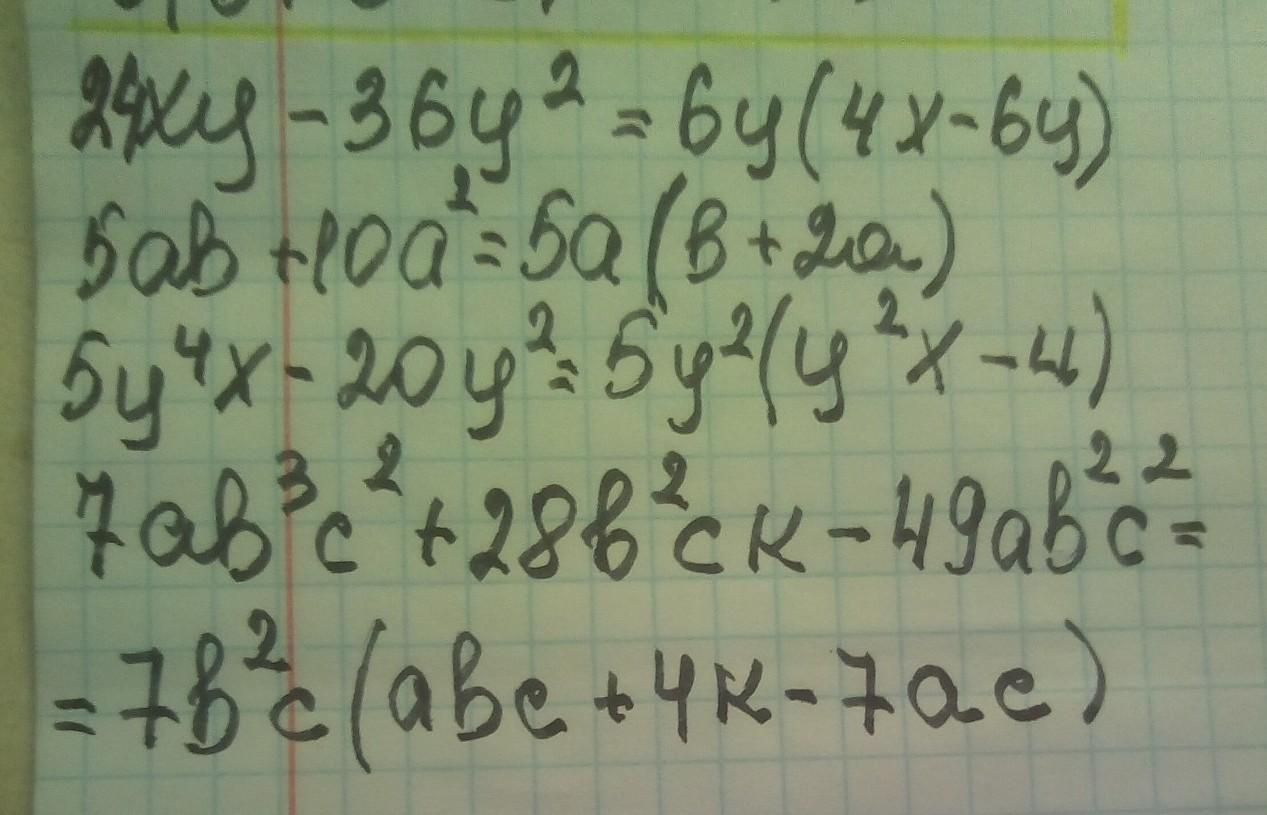 24xy - 36y² = 6y(4x - 6y)
5ab + 10a² = 5a(b + 2a)
5y⁴x - 20y² = 5y²(y²x - 4)
7ab³c² + 28b²cк - 49ab²c² =
= 7b²c(abc + 4к - 7ac)